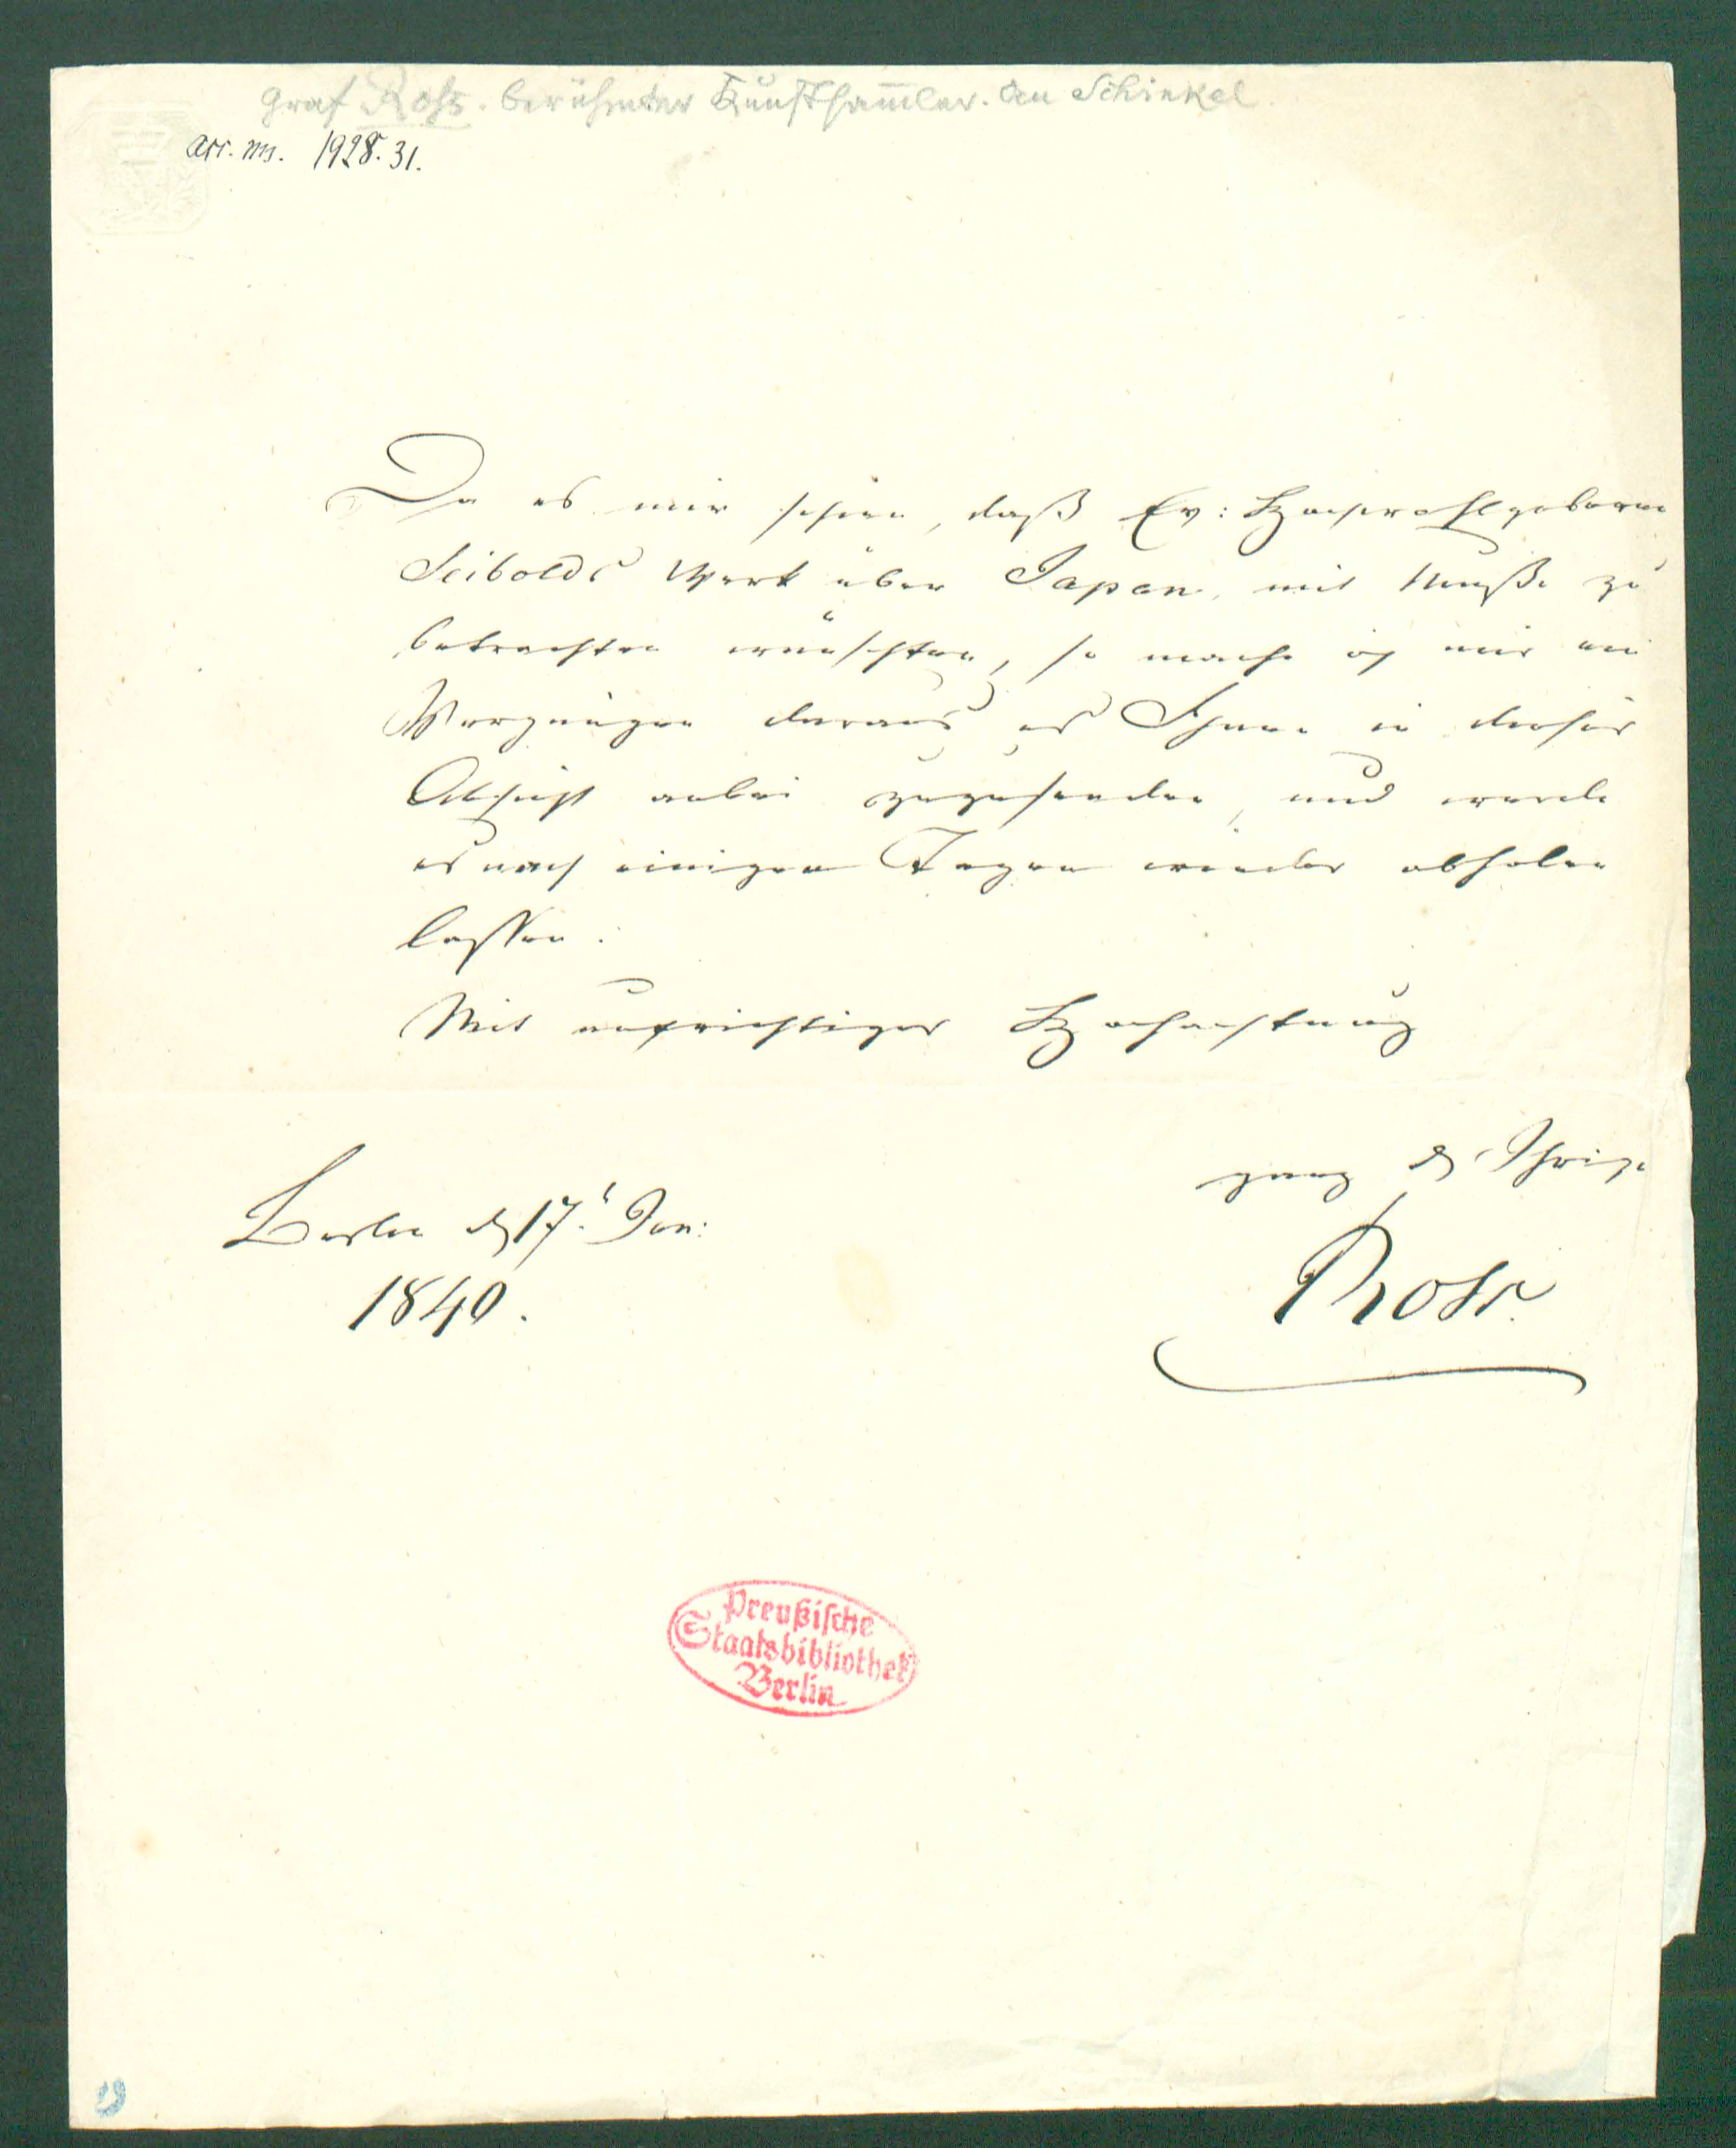 Graf Ross. berühmter Kunstsam̅ler. An Schinkel.
acc. ms. 1928. 31.
Da es mir schien, daß Ew: Hochwohlgeboren
Seibolds Werk über Japan, mit Muße zu
betrachten wünschten, so mache ich mir ein
Vergnügen daraus es Ihnen in dieser
Absicht anbei zuzusenden, und werde
es nach einigen Tagen wieder abholen
lassen.
Mit aufrichtiger Hochachtung
ganz d Ihrige
Berlin d 17.t Jan:
1840.
Ross.
Preußische
Staatsbibliothek
Berlin